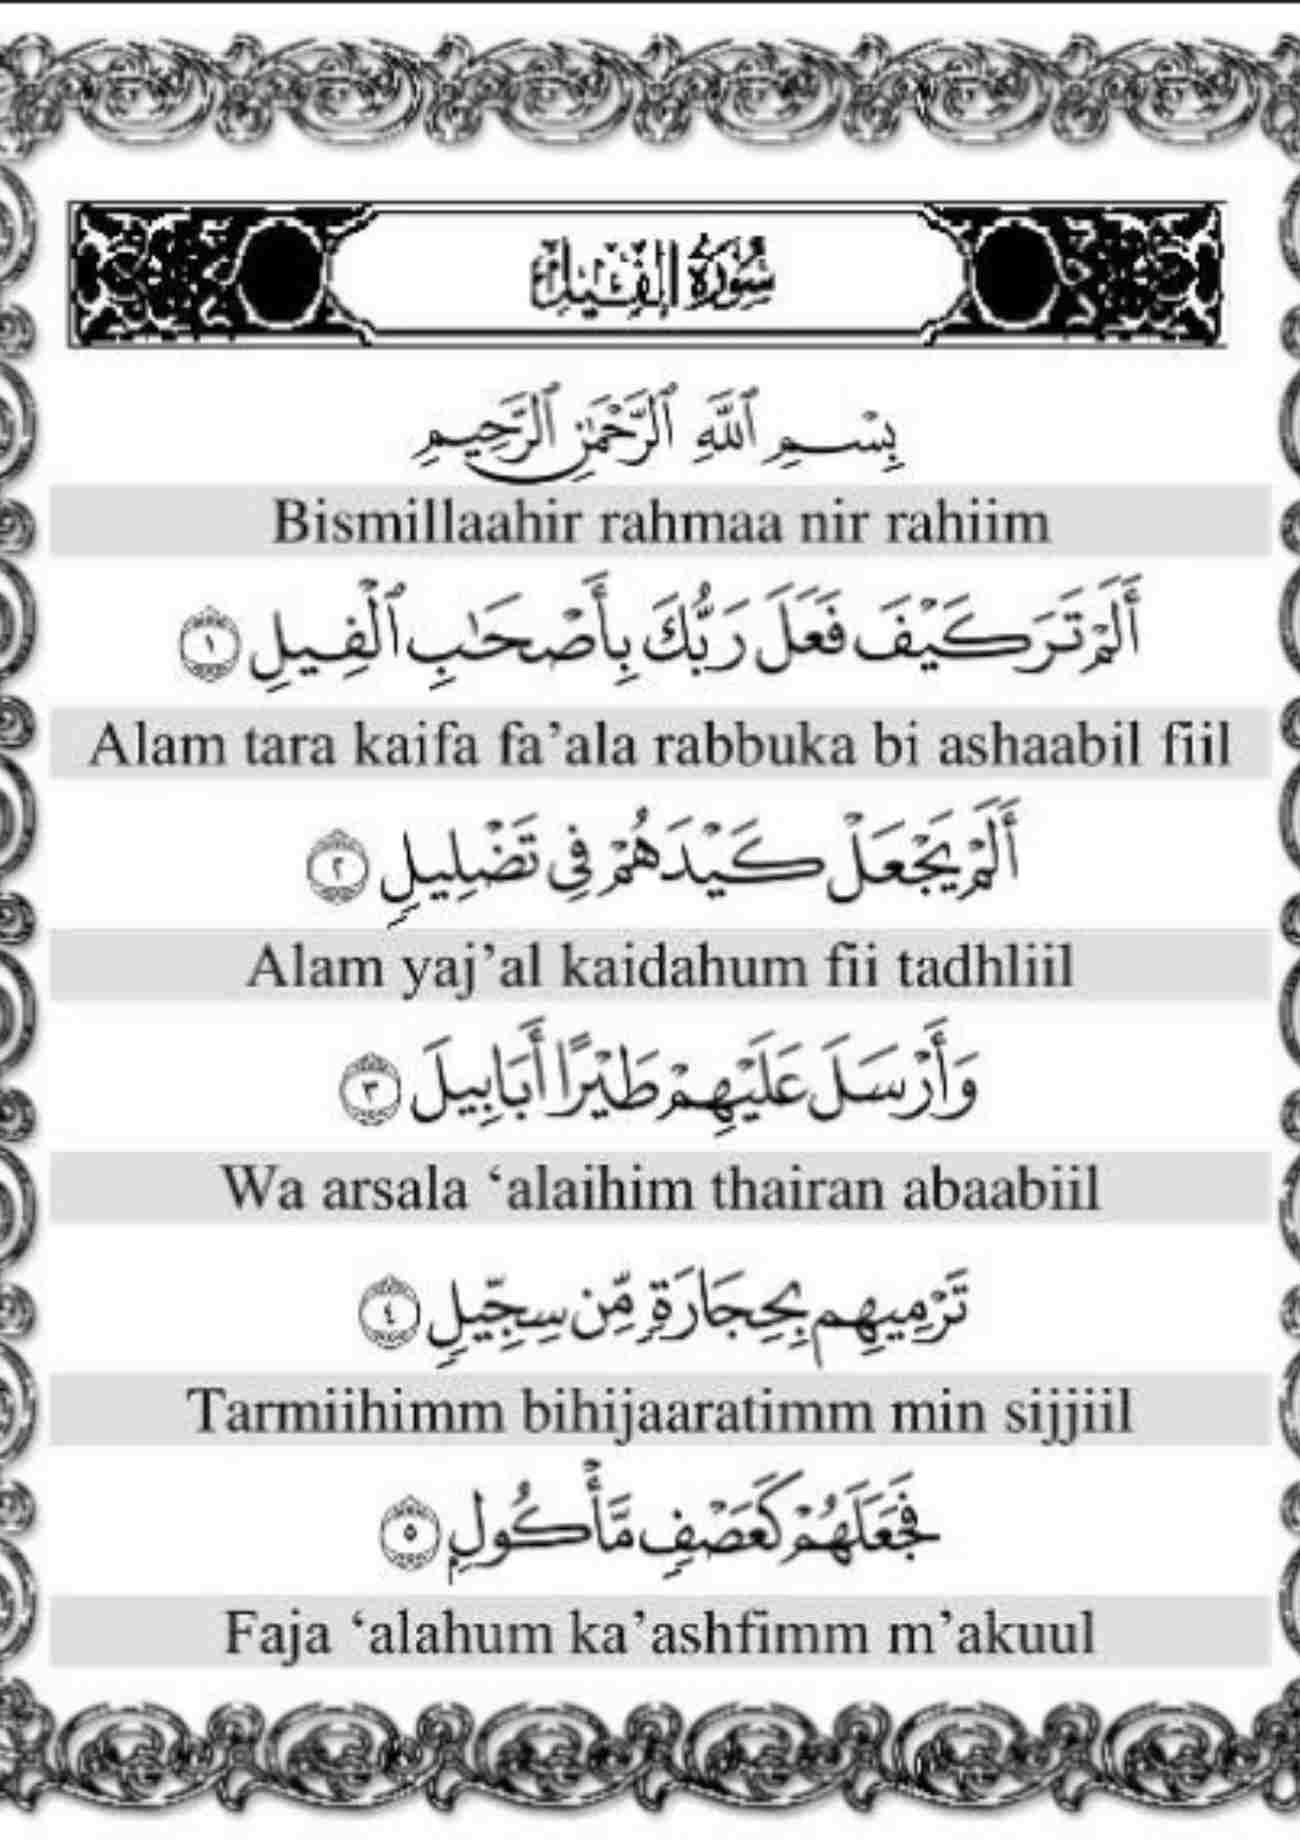 سُورَةُ الْفِيلِ
بِسْمِ ٱللَّهِ ٱلرَّحْمَٰنِ ٱلرَّحِيمِ
Bismillaahir rahmaa nir rahiim
أَلَمْ تَرَ كَيْفَ فَعَلَ رَبُّكَ بِأَصْحَٰبِ ٱلْفِيلِ ١
Alam tara kaifa fa’ala rabbuka bi ashaabil fiil
أَلَمْ يَجْعَلْ كَيْدَهُمْ فِي تَضْلِيلٍ ٢
Alam yaj’al kaidahum fii tadhliil
وَأَرْسَلَ عَلَيْهِمْ طَيْرًا أَبَابِيلَ ٣
Wa arsala ‘alaihim thairan abaabiil
تَرْمِيهِم بِحِجَارَةٍ مِّن سِجِّيلٍ ٤
Tarmiihimm bihijaaratimm min sijjiil
فَجَعَلَهُمْ كَعَصْفٍ مَّأْكُولٍ ٥
Faja ‘alahum ka’ashfimm m’akuul